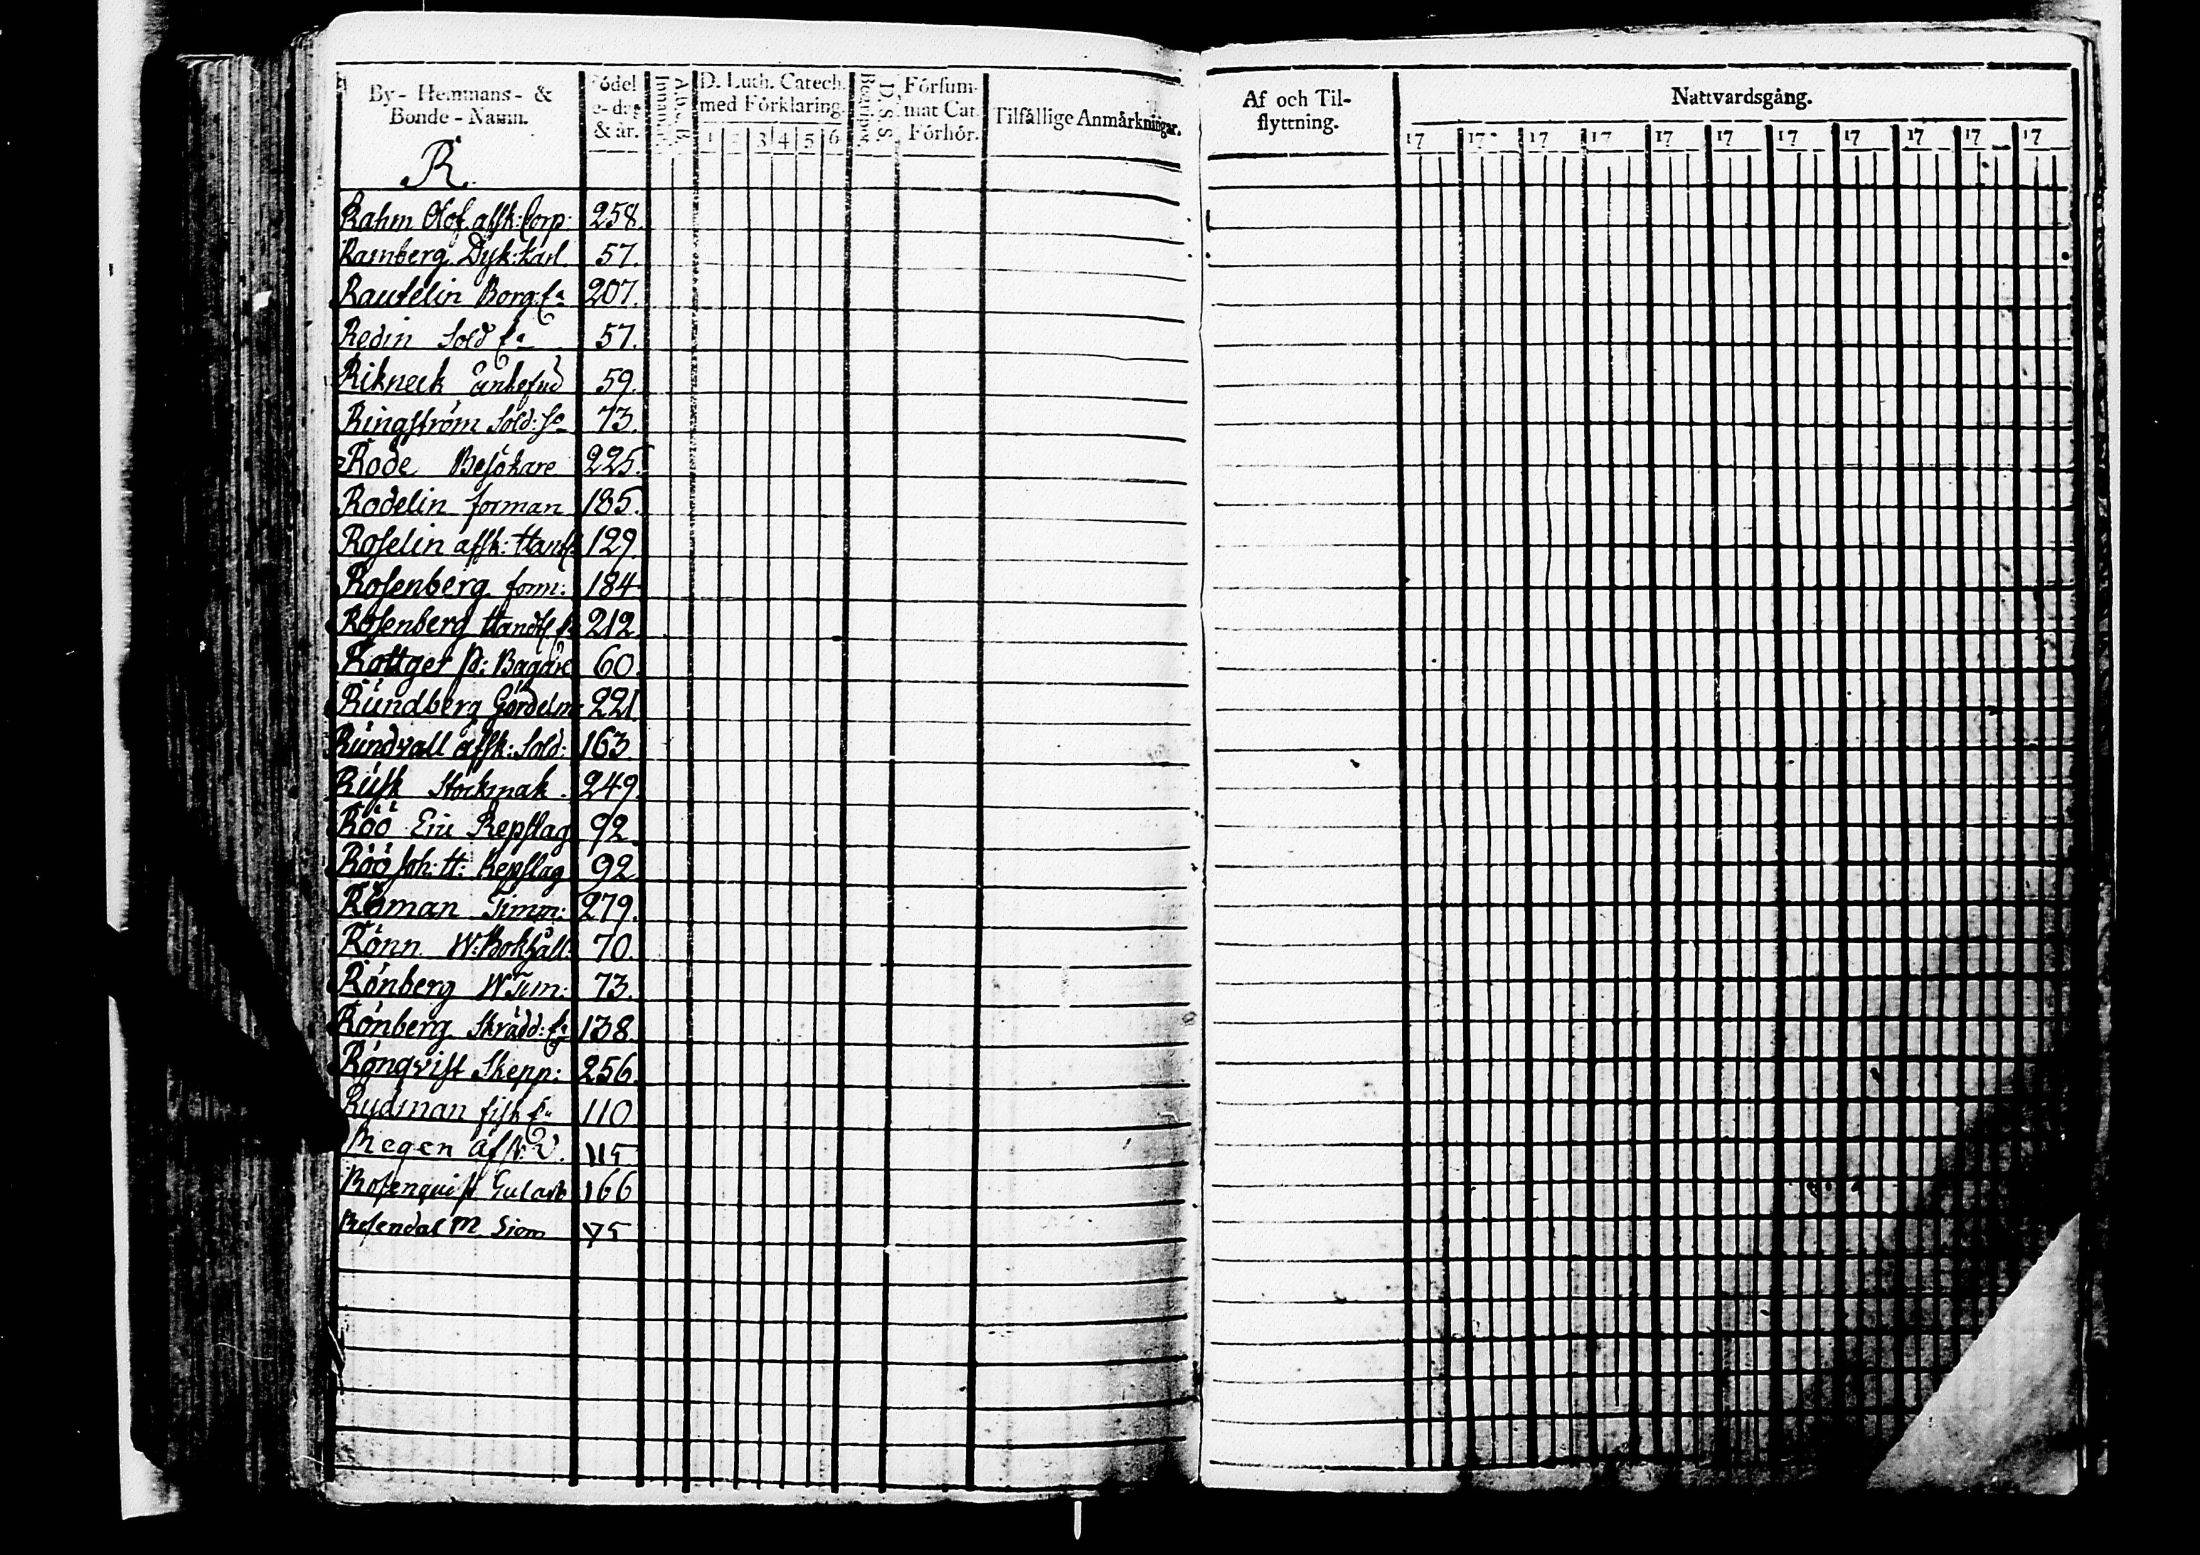 By- Hemmans- &
Bonde-Namn.
Födel
se-dag
& år.
A. b. c. B.
Innantil.
D. Luth. Catech.
med Förklaring.
1 2 3 4 5 6
D. S. S.
Begripet
Försum-
mat Cat.
Förhör.
Tilfällige Anmärkningar.
R.
Rahm Olof afsk: Corp: 258.
Ramberg Dyk: karl 57.
Rautelin Borg: Ea 207.
Redin Sold Ea 57.
Rikneck Enkefru 59.
Ringström Sold: 73.
Rode Besökare 225.
Rodelin forman 185.
Roselin afsk: Handl: 129.
Rosenberg form: 184
Rosenberg Handl Ea 212
Rottger Bagare 60.
Rundberg Gördelm: 221.
Rundvall afsk: Sold: 163.
Rusk Stockmak. 249.
Röö Eric Repslag 92.
Röö Joh: H: Repslag 92
Röman Timm: 279.
Rönn W: Bokhåll: 70.
Rönberg W Tim: 73.
Rönberg Skrädd: Ea 138.
Rönqvist Skepp: 256.
Rudman fisk Ea 110
Regen Afsk: 115
Rosenquist Gul arb 166
Rosendal M 75
Af och Til-
flyttning.
Nattvardsgång.
17 17 17 17 17 17 17 17 17 17 17